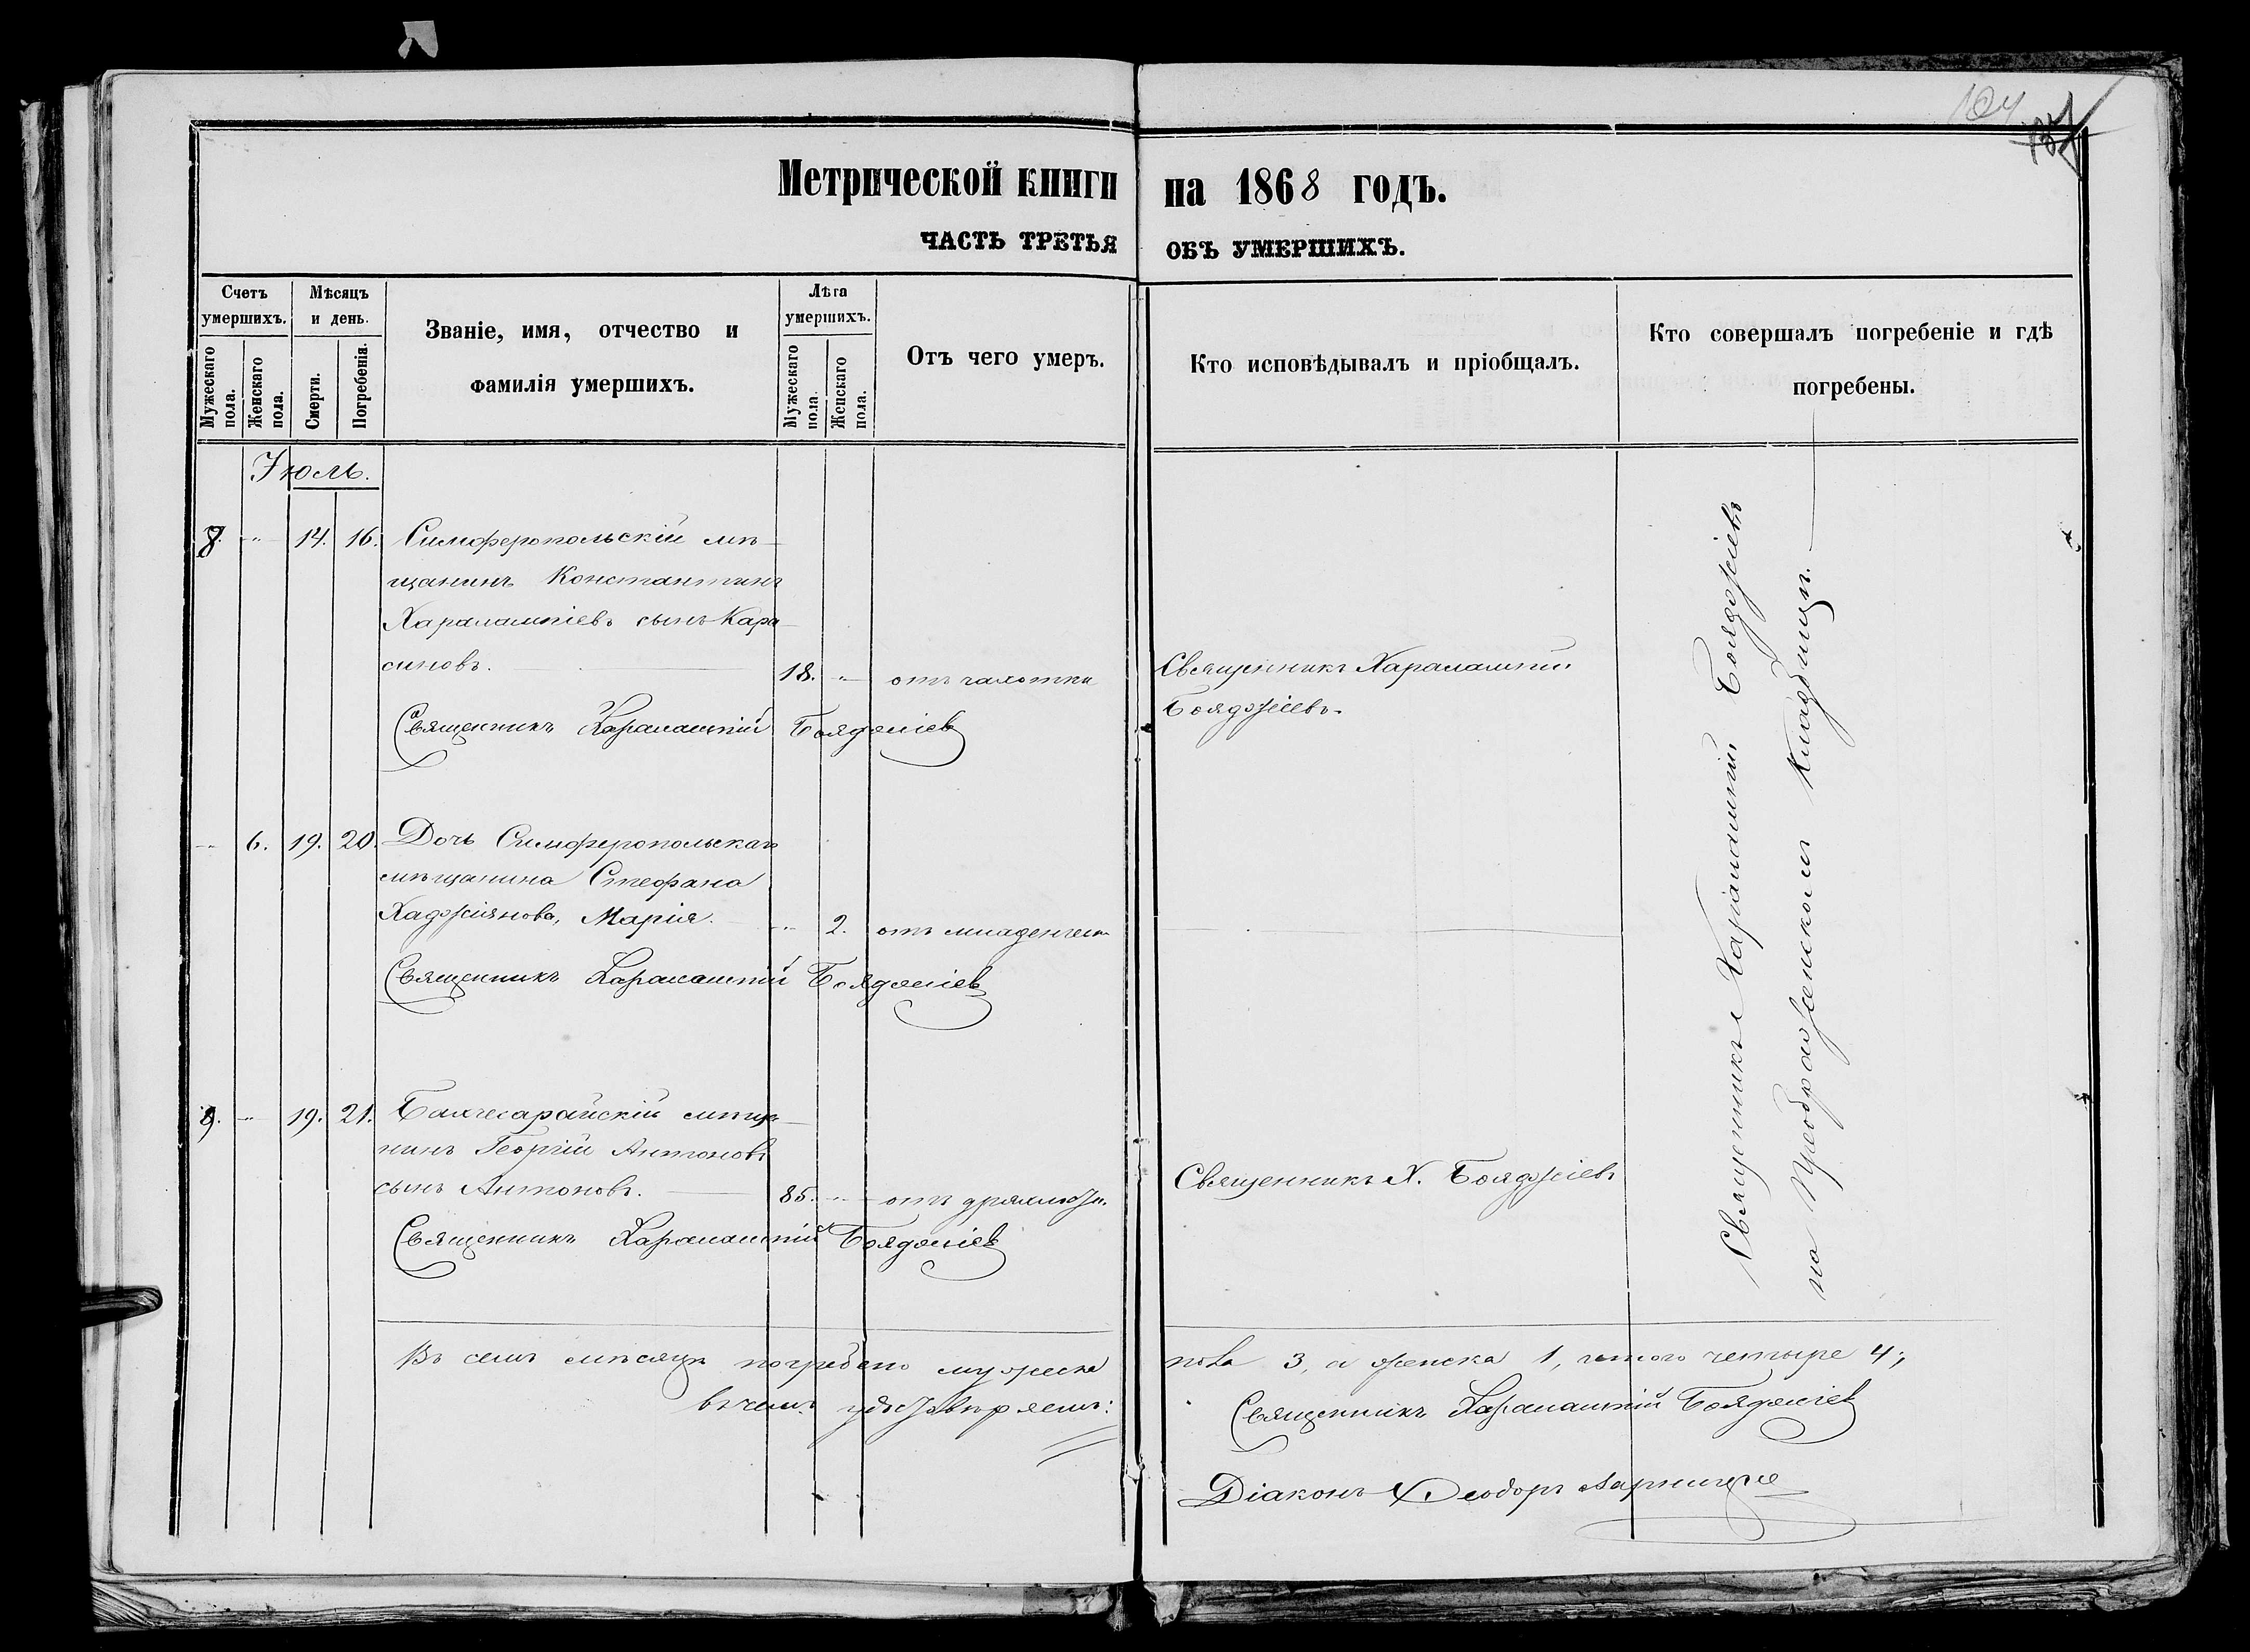 104
Метрической книги на 1868 годъ.
ЧАСТЬ ТРЕТЬЯ ОБЪ УМЕРШИХЪ.
Счетъ умершихъ.
Мужескаго пола.
Женскаго пола.
Мѣсяцъ и день.
Смерти.
Погребенія.
Званіе, имя, отчество и
фамилія умершихъ.
Лѣта умершихъ.
Мужескаго пола.
Женскаго пола.
Отъ чего умеръ.
Кто исповѣдывалъ и пріобщалъ.
Кто совершалъ погребеніе и гдѣ
погребены.
Іюль.
8. " 14. 16. Симферопольскій мѣ-
щанинъ Константинъ
Харалампіевъ сынъ Кара-
синовъ. 18. " отъ чахотки
Священникъ Харалампій
Бояджіевъ.
Священникъ Харалампій Бояджіевъ
" 6. 19. 20. Дочь Симферопольскаго
мѣщанина Стефана
Хаджіянова, Марія. " 2. отъ младенческ
Священникъ Харалампій Бояджіевъ
9. " 19. 21. Бахчесарайскій мѣща-
нинъ Георгій Антоновъ
сынъ Антоновъ. 85. " отъ дряхлости.
Священникъ Х. Бояджіевъ
Священникъ Харалампій Бояджіевъ
Священникъ Харалампій Бояджіевъ
на Преображенскомъ кладбищѣ.
Въ семъ мѣсяцѣ погребено мужеска пола 3, а женска 1, итого четыре 4;
въ чемъ удостовѣряемъ:
Священникъ Харалампій Бояджіевъ
Діаконъ Ѳеодоръ